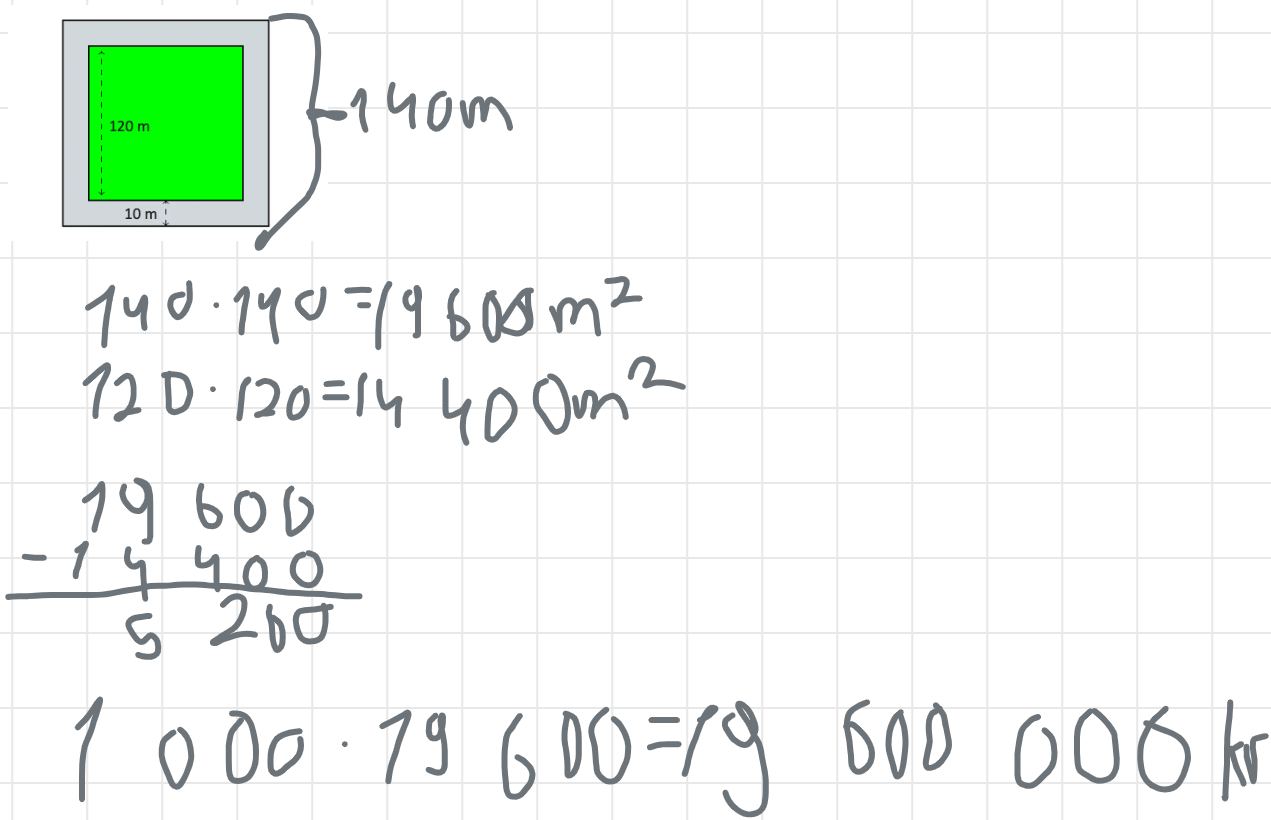 120 m
10 m
140m
140·140=19600m²
120·120=14 400m²
19 600
-14 400
5 200
1 000·19 600=19 600 000 kr